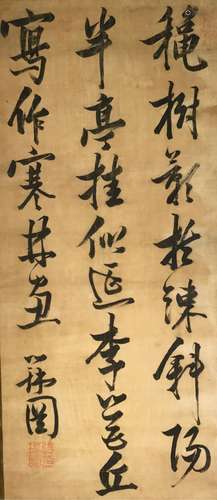 穐樹影扶疎斜陽
半亭挂似延李營丘
寫作寒林画